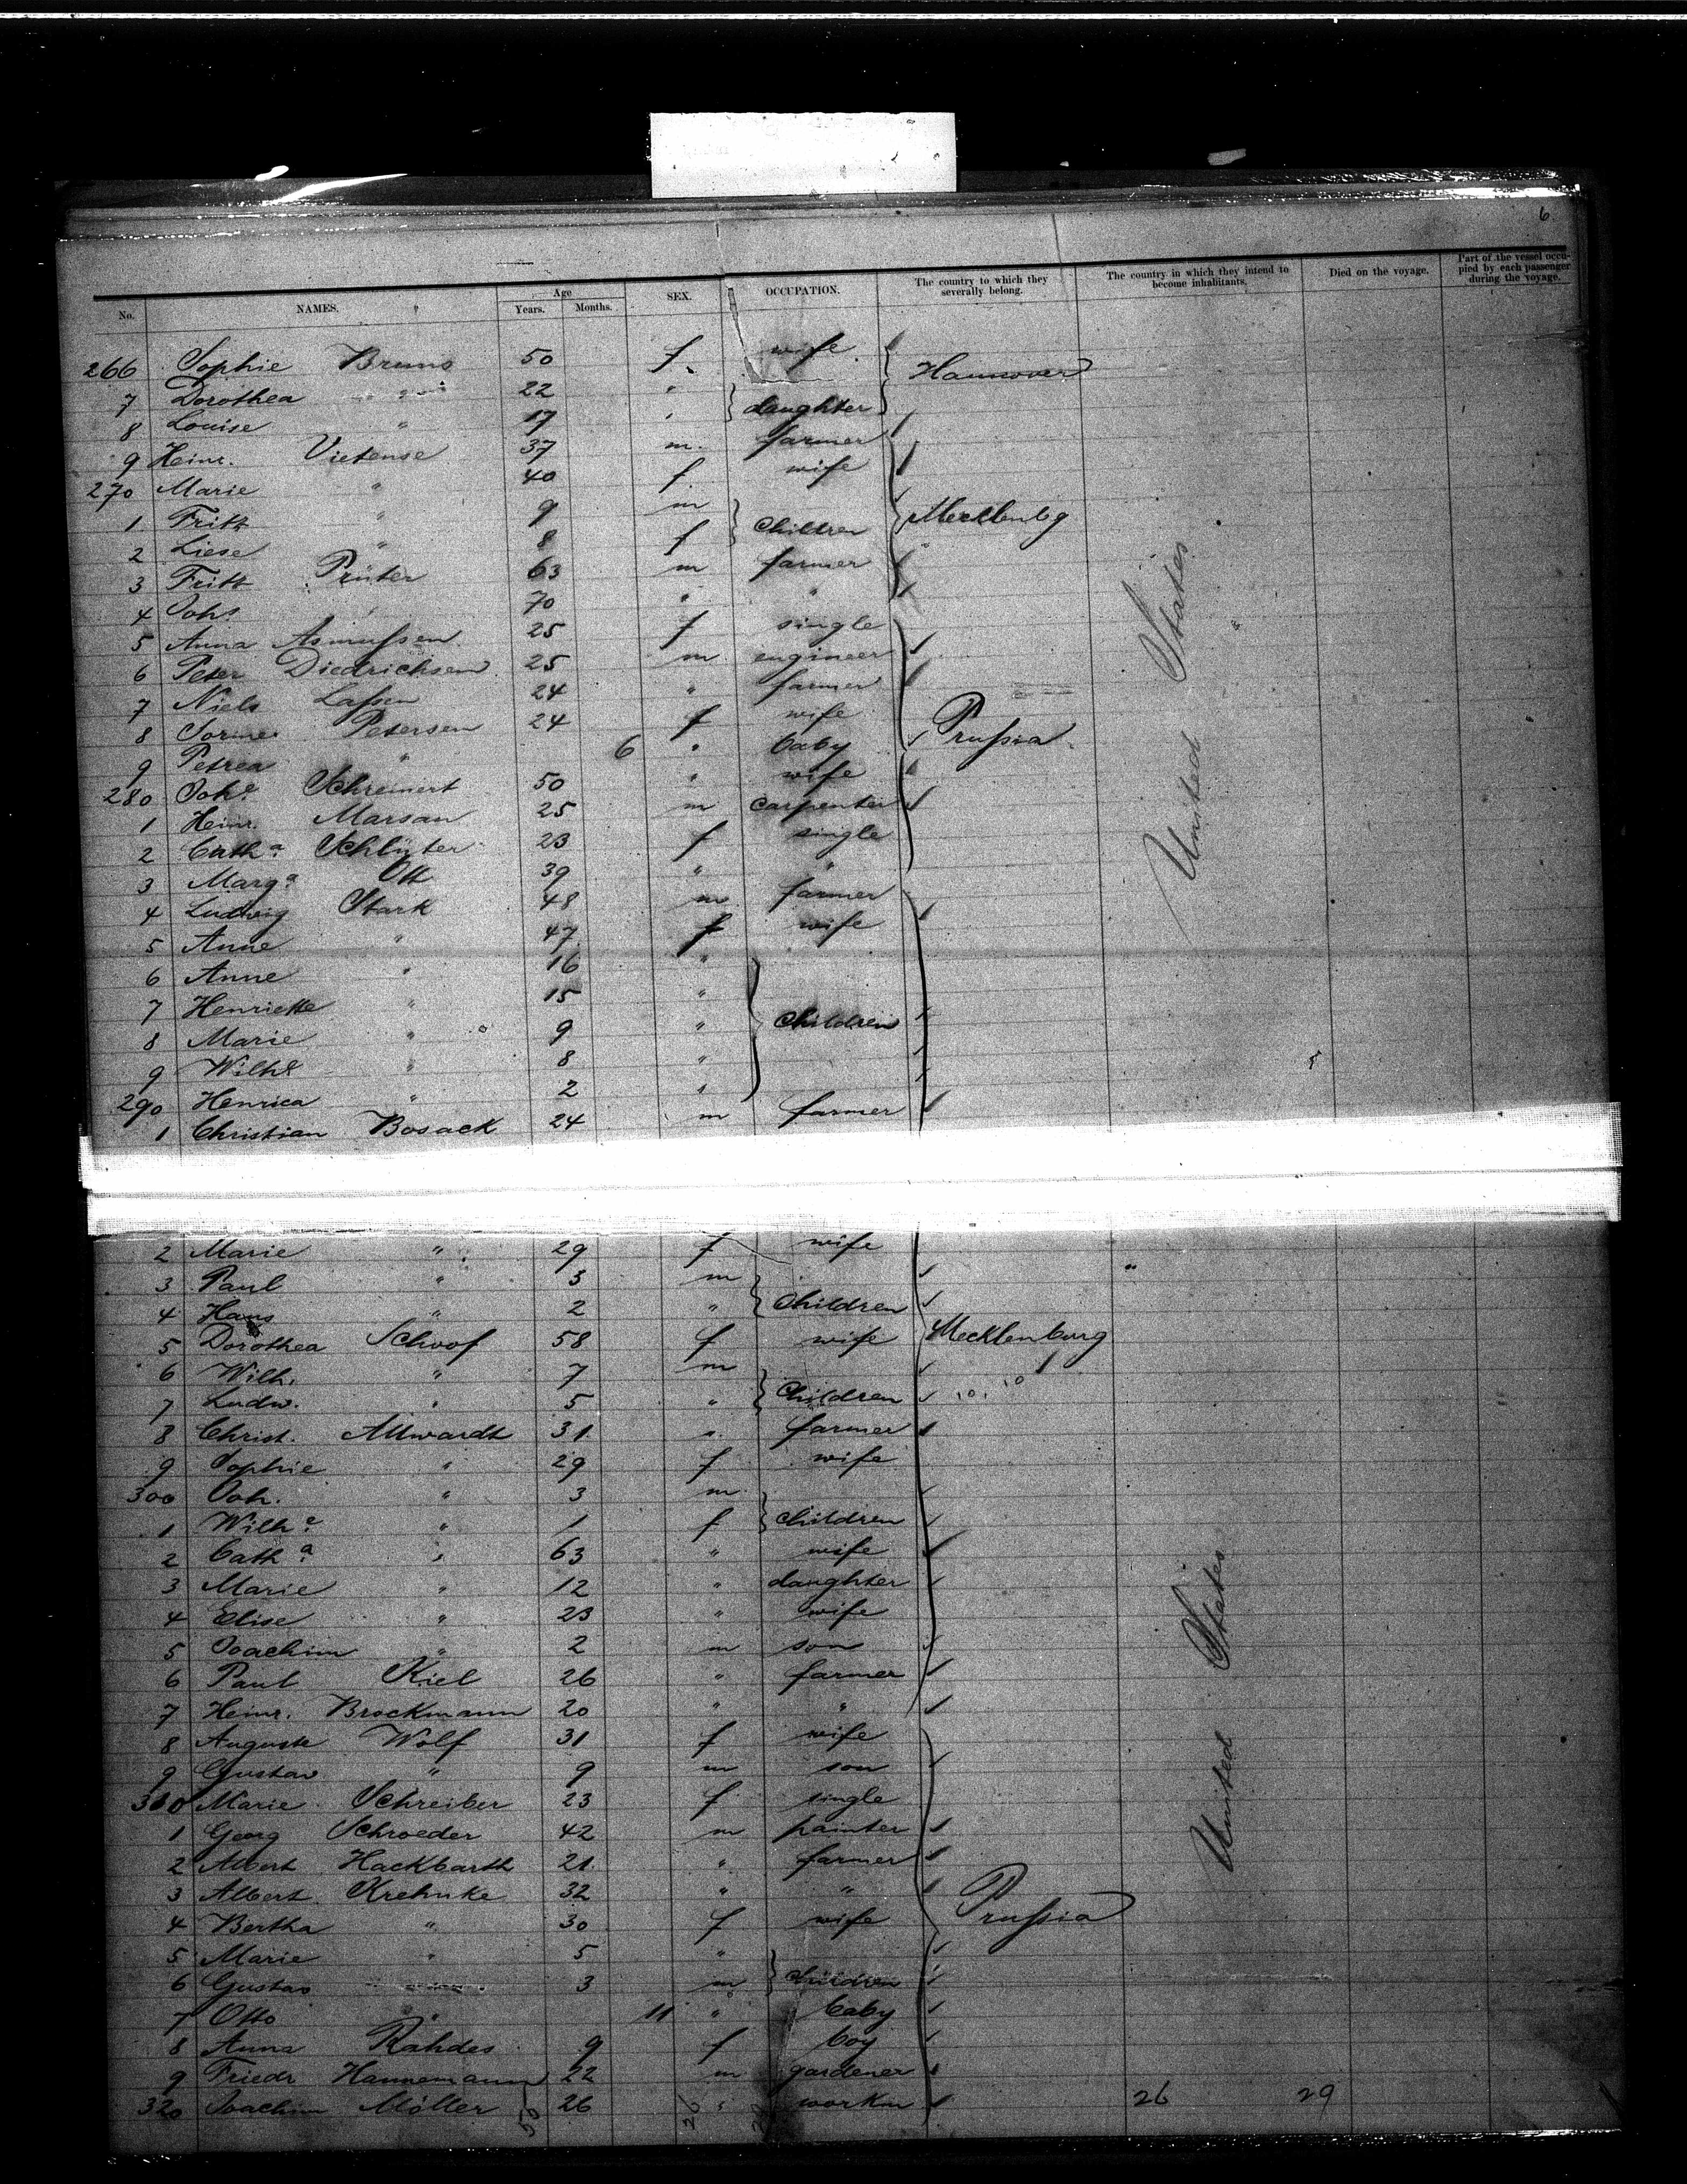 6
No. NAMES. Age Years. Months. SEX. OCCUPATION. The country to which they severally belong. The country in which they intend to become inhabitants. Died on the voyage. Part of the vessel occupied by each passenger during the voyage.
266 Sophie Bruns 50 f wife Hannover
7 Dorothea " 22 " daughter
8 Louise " 17 "
9 Heinr. Vietense 37 m. farmer
270 Marie " 40 f wife
1 Fritz " 9 m Children Mecklenbg
2 Liese " 8 f
3 Fritz Prüter 63 m farmer
4 Johs 70 " "
5 Anna Asmuſsen 25 f single
6 Peter Diedrichsen 25 m engineer
7 Niels Laſsen 24 " farmer
8 Petersen 24 f wife Pruſsia
9 Petrea " 6 " baby
280 Johe Schreinert 50 " wife
1 Heinr. Marsau 25 m carpenter
2 Catha Schlüter 23 f single
3 Marga Ott 39 " "
4 Ludwig Stark 48 m farmer
5 Anne " 47 f wife
6 Anne " 16 "
7 Henriette " 15 " Children
8 Marie " 9 "
9 Wilhe " 8 "
290 Henrica " 2 "
1 Christian Bosack 24 m farmer
United States
2 Marie " 29 f wife
3 Paul " 3 m Children
4 Hans " 2 "
5 Dorothea Schoof 58 f wife Mecklenburg
6 Wilh. " 7 m Children
7 Ludw. " 5 "
8 Christ. Allwardt 31 " farmer
9 Sophie " 29 f wife
300 Joh. " 3 m Children
1 Wilhe " 1 f
2 Catha " 63 " wife
3 Marie " 12 " daughter
4 Elise " 23 " wife
5 Joachim " 2 m son
6 Paul Kiel 26 " farmer
7 Heinr. Brockmann 20 " "
8 Auguste Wolf 31 f wife
9 Gustav " 9 m son
310 Marie Schreiber 23 f single
1 Georg Schroeder 42 m painter
2 Albert Hackbarth 21 " farmer
3 Albert Krehnke 32 " "
4 Bertha " 30 f wife Pruſsia
5 Marie " 5 " Children
6 Gustav " 3 m
7 Otto " 11 " baby
8 Anna Rahdes 9 f boy
9 Friedr Hannemann 22 m gardener
320 Joachim Möller 26 " workm
United States
50 26 26 29